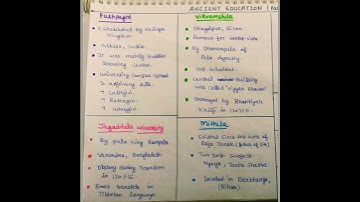 ANCIENT EDUCATION
Pushpagiri
Established by Kalinga
Kingdom
Odisha, India.
It was mainly buddhist
learning centre.
University campus spread
3 adjoining hills
Lalitgiri
Ratnagiri
Udaygiri
Vikramshila
Bhagalpur, Bihar.
Famous for
By Dharampala of
Pala dynasty
108 scholars
Central building
was called
Destroyed by Bhaktiyar
Khilji in 1203CE.
Jagaddala university
By pala king Rampala
Varendra, Bangladesh
during invasion
in 1203CE.
Books translate in
Tibbetan Language.
Mithila
Existed since the time of
Raja Janak
Two Imp. Subjects
Nyaya, Tarka Shastra
Located in Darbhanga,
(Bihar)